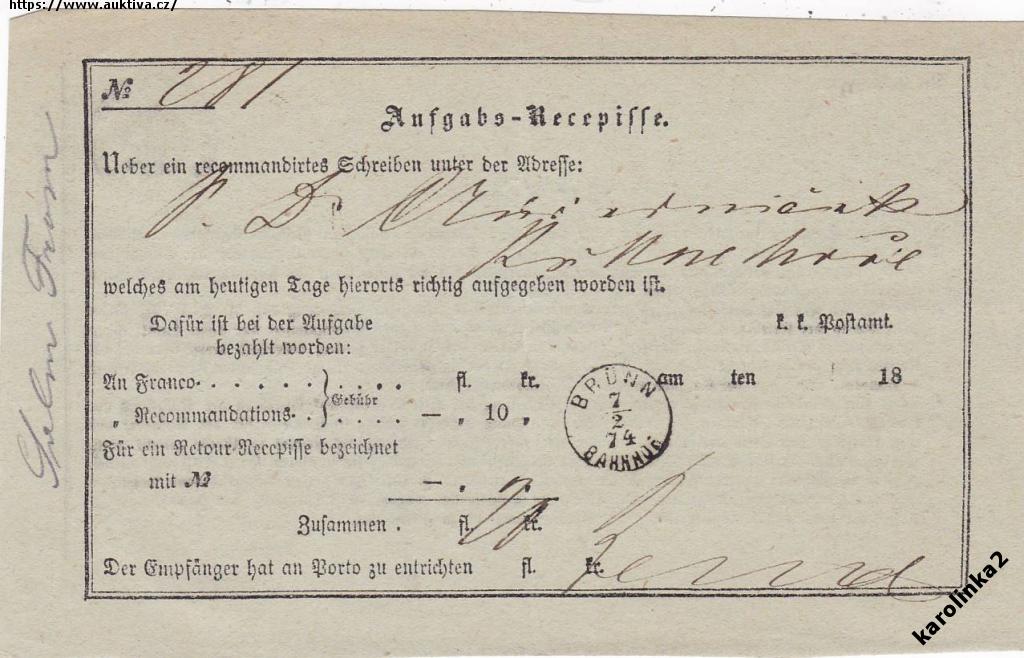 https://www.auktiva.cz/
№ 281
Aufgabs-Recepisse.
Ueber ein recommandirtes Schreiben unter der Adresse:
P. Dr
welches am heutigen Tage hierorts richtig aufgegeben worden ist.
Dafür ist bei der Aufgabe
bezahlt worden:
k. k. Postamt.
An Franco . . . . . . . . . . fl. kr.
am ten 18
Gebühr
„ Recommandations . . . . . . — „ 10 „
BRÜNN
7/2
74
BAHNHOF
Für ein Retour-Recepisse bezeichnet
mit № — „ „
Zusammen . fl. kr.
Der Empfänger hat an Porto zu entrichten fl. kr.
karolinka2